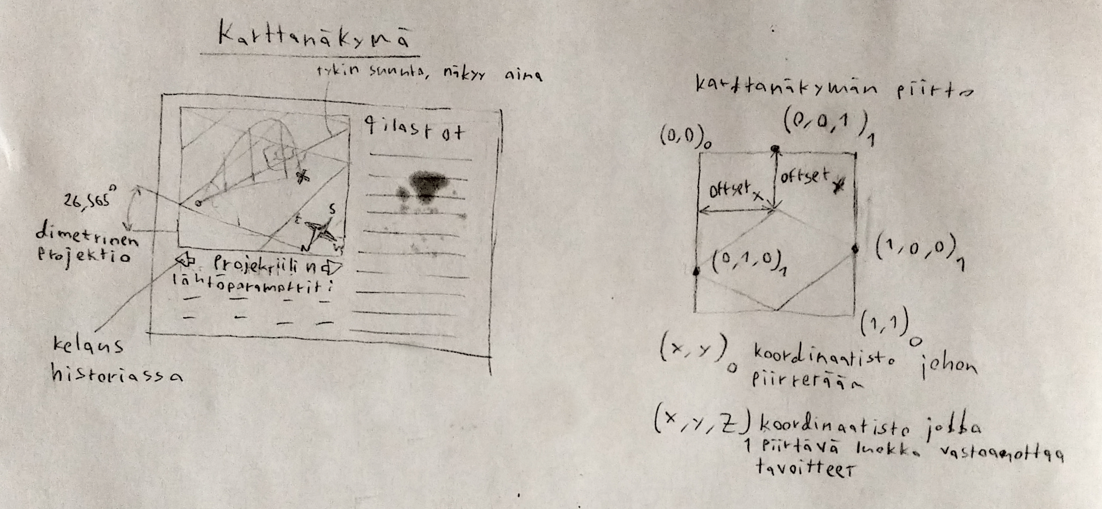 Karttanäkymä
tykin suunta, näkyy aina
26,565°
dimetrinen
projektio
Tilastot
S
E
N
W
projektiilin
lähtöparametrit:
kelaus
historiassa
karttanäkymän piirto
(0,0)₀
(0,0,1)₁
offsetₓ
offset
(0,1,0)₁
(1,0,0)₁
(1,1)₀
(x,y)₀ koordinaatisto johon
piirretään
(x,y,z)₁ koordinaatisto jolla
piirtävä luokka vastaanottaa
tavoitteet